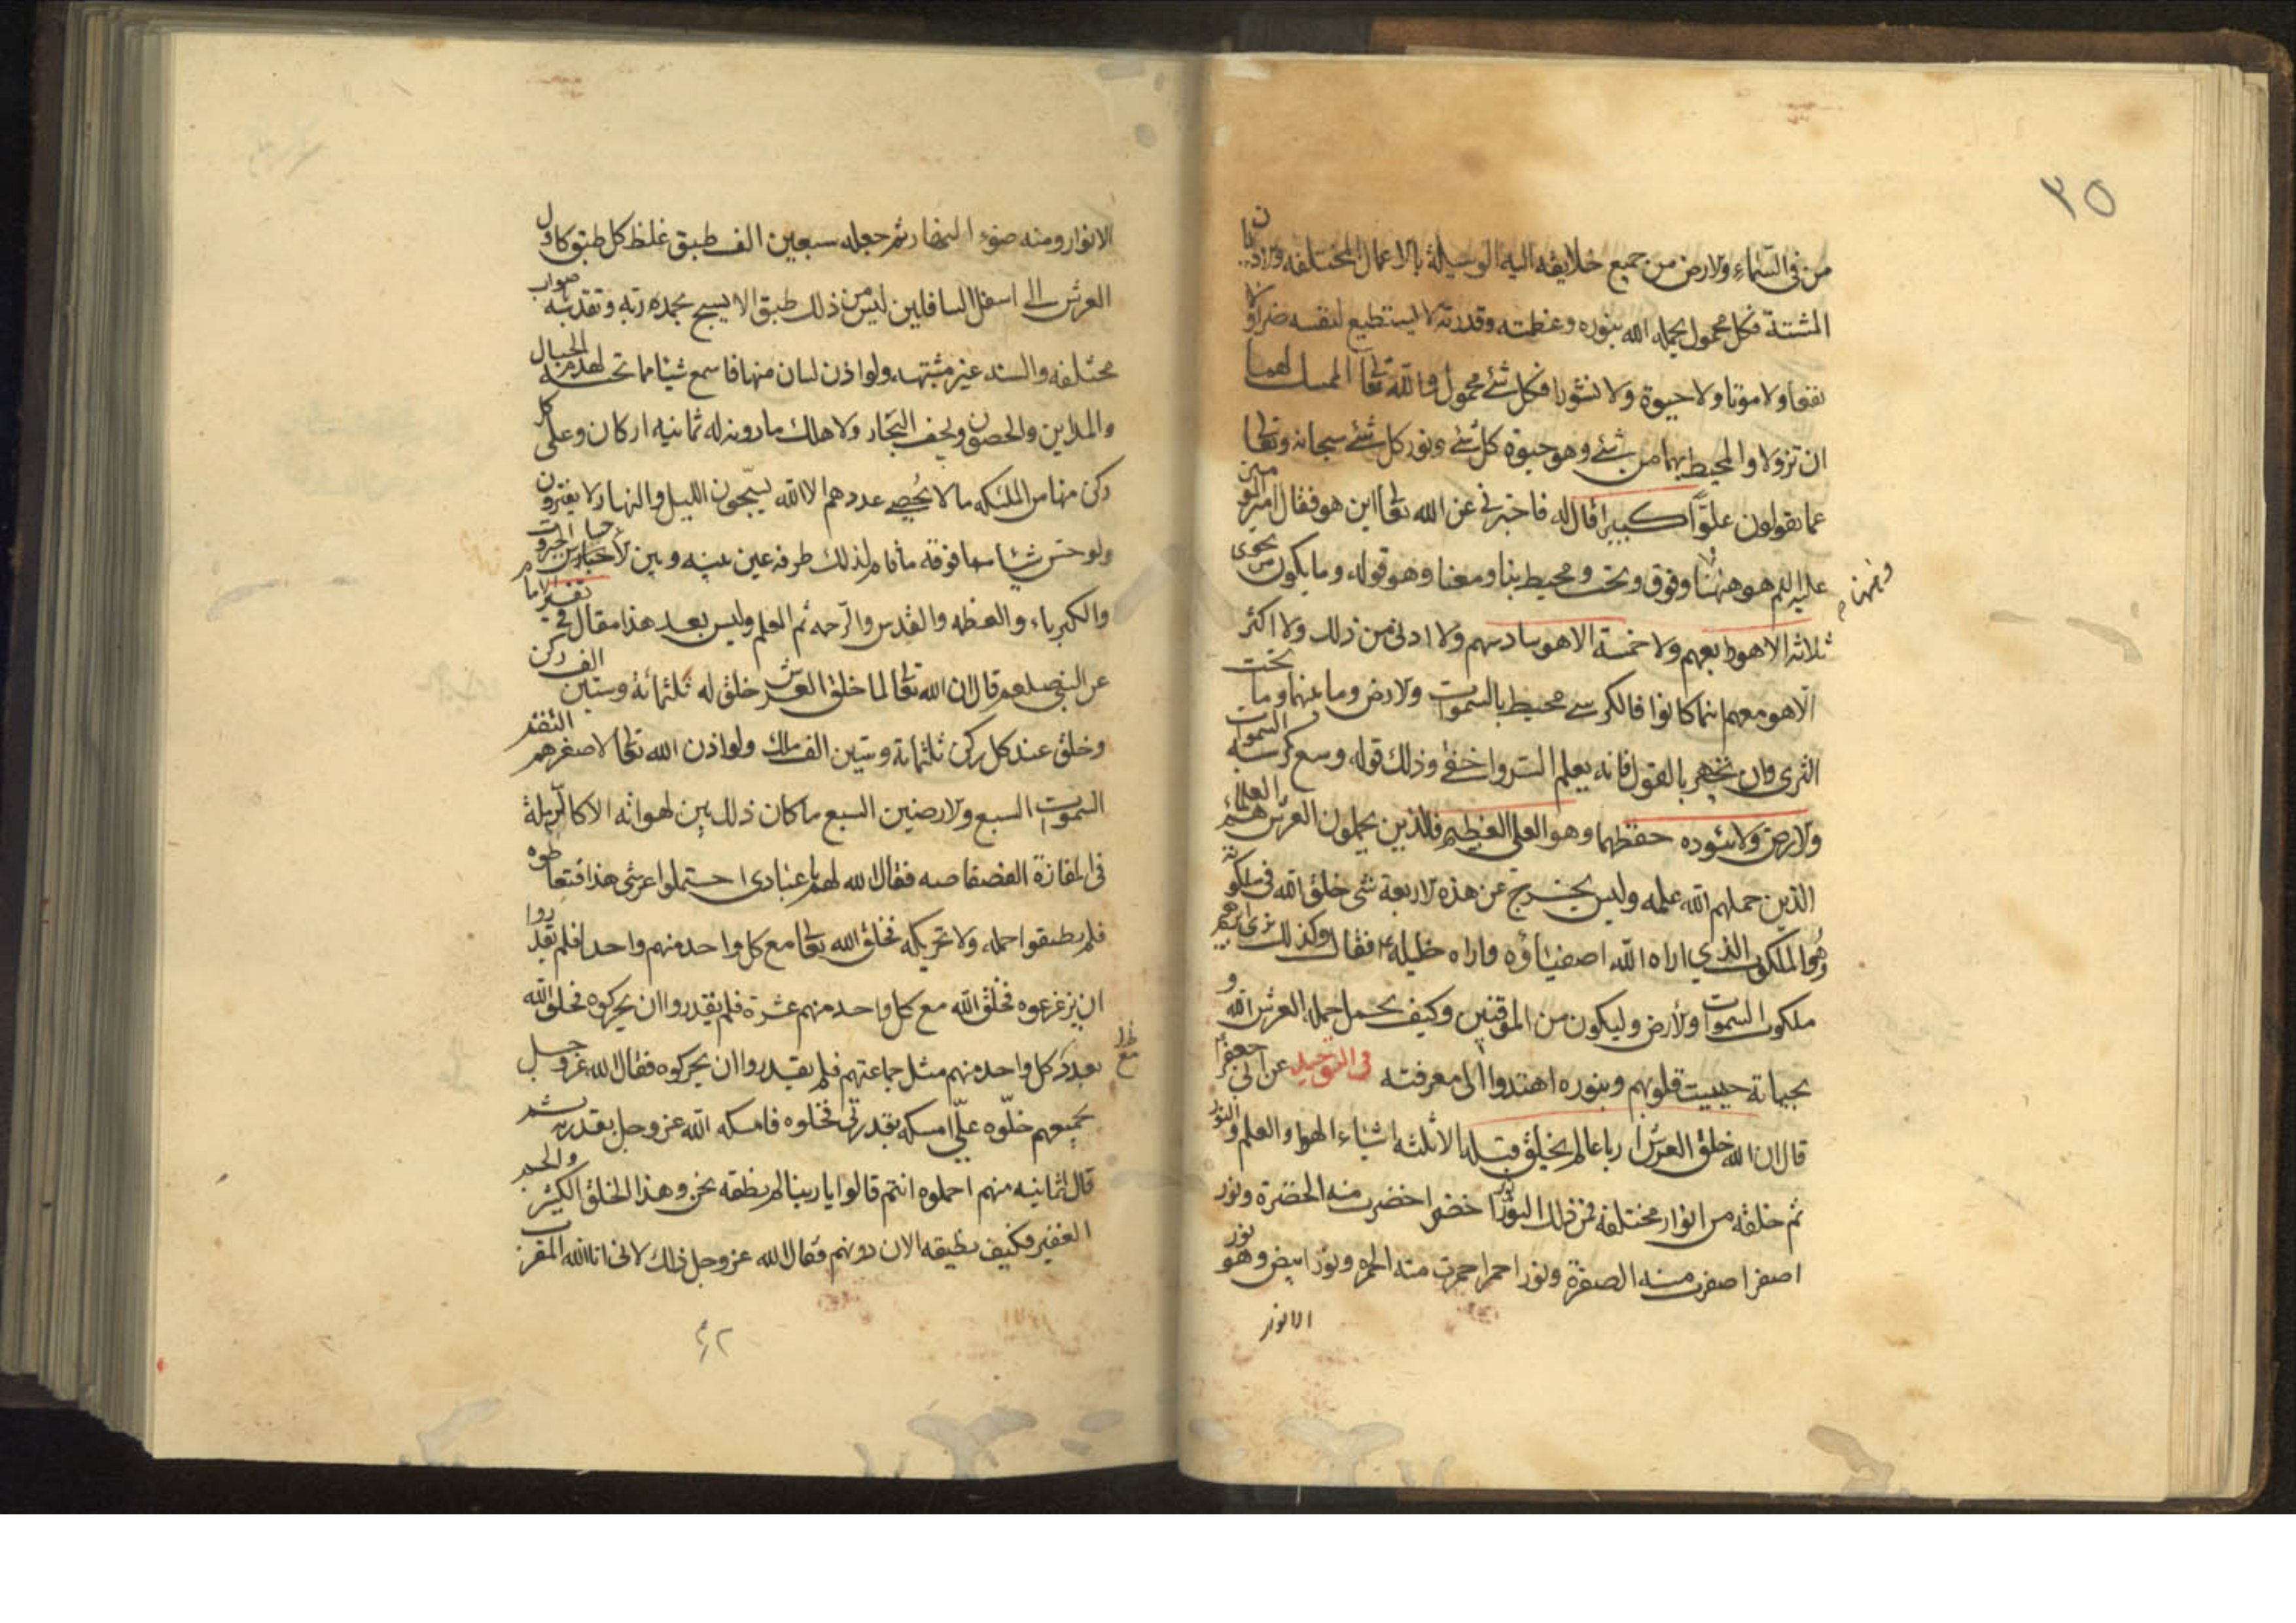 ٣٥
من في السّماء ولارض من جميع خلايقه اليه الوسيلة بالاعمال المختلفه ولاديان
المشتتة فكل محمول يحمله الله بنوره وعظمته وقدرته لا يستطيع لنفسه ضرا ولا
نفعا ولا موتا ولا حيوة ولا نشورا فكل شئ محمول والله تعالى الممسك لهما
ان تزولا والمحيط بهما من شئ وهو حيوة كل شئ ونور كل شئ سبحانه وتعالى
عما يقولون علوّا كبيرا قال له فاخبرني عن الله تعالى اين هو فقال امير المومنين
عليه السلم هو ههنا وفوق وتحت ومحيط بنا ومعنا وهو قوله وما يكون من نجوى
ثلاثه الا هو رابعهم ولا خمسة الا هو سادسهم ولا ادنى من ذلك ولا اكثر
الّا هو معهم اينما كانوا فالكرسي محيط بالسموات ولارض وما بينهما وما تحت
الثرى وان تجهر بالقول فانه يعلم السر واخفى وذلك قوله وسع كرسيه السموات
ولارض ولا يئوده حفظهما وهو العلي العظيم فالذين يحملون العرش هم العلماء
الذين حملهم الله علمه وليس يخرج عن هذه لاربعة شئ خلق الله في ملكوته
وهو الملكوت الذي اراه الله اصفياؤه واراه خليله فقال وكذلك نري ابرهيم
ملكوت السموات ولارض وليكون من الموقنين وكيف يحمل حملة العرش الله و
بحياته حييت قلوبهم وبنوره اهتدوا الى معرفته في التوحيد عن ابي جعفر
قال ان الله خلق العرش ارباعا لم يخلق قبله الا ثلثه اشياء الهوا والعلم والنور
ثم خلقه من انوار مختلفه فمن ذلك النور نور اخضر اخضرت منه الخضرة ونور
اصفر اصفرت منه الصفرة ونور احمر احمرت منه الحمره ونور ابيض وهو نور
الانوار
الانوار ومنه ضوء النهار ثم جعله سبعين الف طبق غلظ كل طبق كاول
العرش الى اسفل السافلين ليس من ذلك طبق الا يسبح بحمده ربه وتقدسه صوات
مختلفه والسنه غير مشتبهه ولو اذن لسان منها فاسمع شيئا مما تحته لهدم الجبال
والمداين والحصون ولخسف البحار ولا هلك ما دونه له ثمانيه اركان وعلى كل
ركن منها من الملئكه ما لا يحصى عددهم الا الله يسبّحون الليل والنهار لا يفترون
ولو حس شئ مما فوقه ما قام لذلك طرفه عين بينه وبين لاحساس الجبروت
والكبرياء والعظمه والقدس والرّحمه ثم العلم وليس بعد هذا مقال في تفسير الامام
عن النبي صلعم قال ان الله تعالى لما خلق العرش خلق له ثلثمائة وستين الف ركن
وخلق عند كل ركن ثلثمائة وستين الف ملك ولو اذن الله تعالى لاصغرهم التقم
السموات السبع ولارضين السبع ما كان ذلك بين لهواته الا كالرّملة
في المفازة الفضفاضه فقال الله لهم يا عبادي احتملوا عرشي هذا فتعاطوه
فلم يطيقوا حمله ولا تحريكه فخلق الله تعالى مع كل واحد منهم واحدا فلم يقدروا
ان يزعزعوه فخلق الله مع كل واحد منهم عشرة فلم يقدروا ان يحركوه فخلق الله
بعدد كل واحد منهم مثل جماعتهم فلم يقدروا ان يحركوه فقال الله عز وجل
لجميعهم خلّوه عليّ امسكه بقدرتي فخلوه فامسكه الله عز وجل بقدرته ثم
قال لثمانيه منهم احملوه انتم قالوا يا ربنا لم نطقه نحن وهذا الخلق الكثير والجم
الغفير فكيف نطيقه الان دونهم فقال الله عز وجل ذلك لانى انا الله المقرب